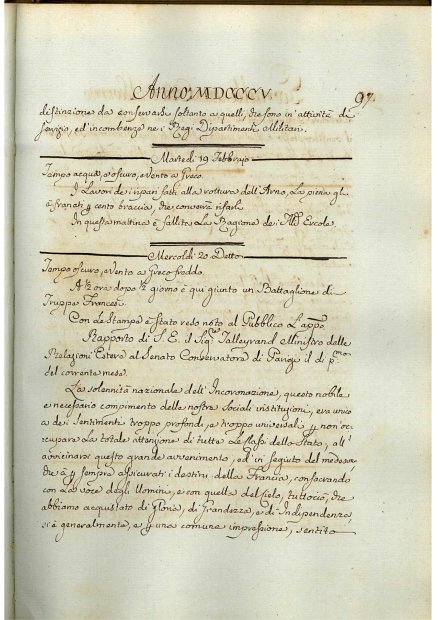 Anno MDCCCV.
97
distinzione da conservarsi soltanto a quelli, che sono in attività di
servizio, ed incombenza nei Regi Dipartimenti Militari.
Martedi 19 Febbrajo
Tempo acquoso, oscuro, e vento a Greco.
I Lavori de i ripari fatti alla rottura dell'Arno, La piena gl'
à franati p cento braccia che converrà rifarli
In questa mattina è fallita La Ragione de i Ercole.
Mercoldi 20 Detto
Tempo oscuro, e vento a Greco freddo.
A ½ ora dopo ½ giorno è qui giunto un Battaglione di
Truppe Francesi.
Con Le Stampe è stato reso noto al Pubblico L'appo
Rapporto di S. E. il Sigre Talleyrand Ministro delle
Relazioni Estere al Senato Conservatore di Parigi il di pmo
del corrente mese.
La solennità nazionale dell'Incoronazione, questo nobile
e necessario compimento delle nostre Sociali instituzioni, era unico
a dei sentimenti troppo profondi, e troppo universali p non oc
cupare La totale attenzione di tutte Le Classi dello Stato, all'
avvicinarsi questo grande avvenimento, ed in seguito del medesimo
che à p sempre assicurati i destini della Francia, consacrando
con La voce degli Uomini, e con quella del Cielo, tuttociò, che
abbiamo acquistato di Gloria, di Grandezza, e di Indipendenza
si è generalmente, e p una comune impressione, sentito